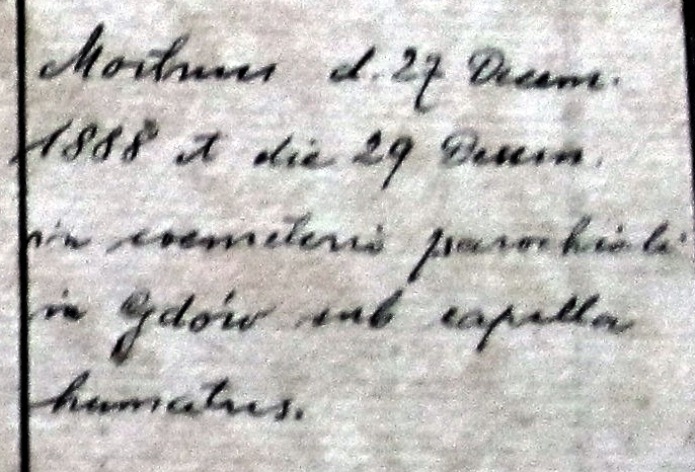 Mortuus d. 27 Decem.
1888 et die 29 Decem.
in coemeterio parochiali
in Gdów sub capella
humatus.